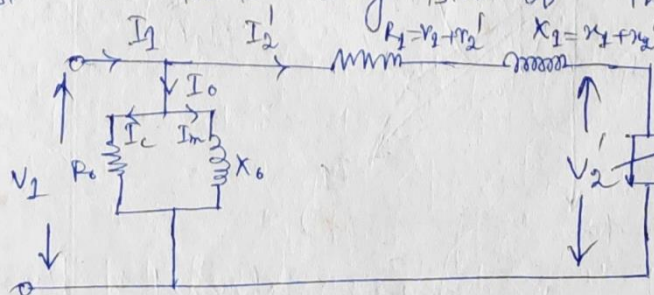 I1 I2' R1=r1+r2' X1=x1+x2'
I0
Ic Im
V1 R0 X0 V2'